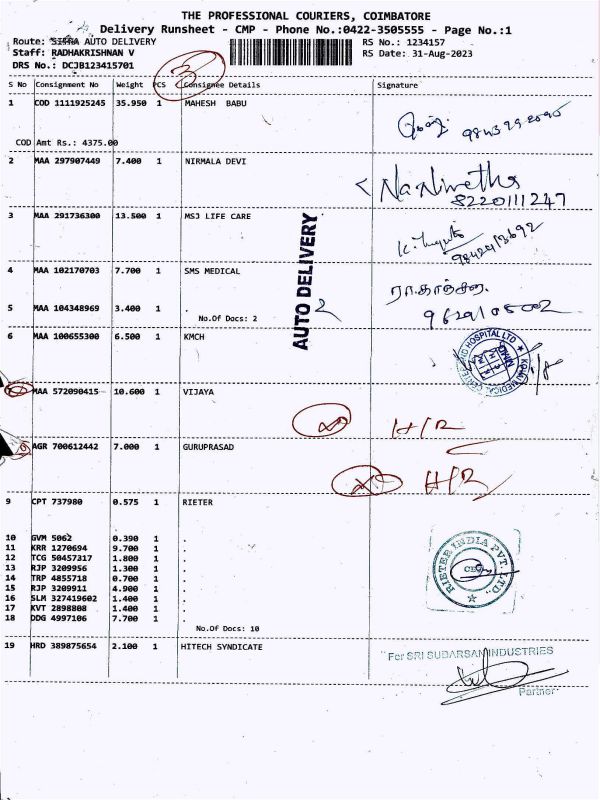 THE PROFESSIONAL COURIERS, COIMBATORE
Delivery Runsheet - CMP - Phone No.:0422-3505555 - Page No.:1
Route: SITRA AUTO DELIVERY RS No.: 1234157
Staff: RADHAKRISHNAN V RS Date: 31-Aug-2023
DRS No.: DCJB123415701
3
S No Consignment No Weight PCS Consignee Details Signature
1 COD 1111925245 35.950 1 MAHESH BABU
COD Amt Rs.: 4375.00
2 MAA 297907449 7.400 1 NIRMALA DEVI
Na Nivetha
8220111247
3 MAA 291736300 13.500 1 MSJ LIFE CARE
AUTO DELIVERY
4 MAA 102170703 7.700 1 SMS MEDICAL
5 MAA 104348969 3.400 1 .
No.Of Docs: 2
2
6 MAA 100655300 6.500 1 KMCH
MAA 572090415 10.600 1 VIJAYA
H/R
AGR 700612442 7.000 1 GURUPRASAD
H/R
9 CPT 737980 0.575 1 RIETER
10 GVM 5062 0.390 1 .
11 KRR 1270694 9.700 1 .
12 TCG 50457317 1.800 1 .
13 RJP 3209956 1.300 1 .
14 TRP 4855718 0.700 1 .
15 RJP 3209911 4.900 1 .
16 SLM 327419602 1.400 1 .
17 KVT 2898808 1.400 1 .
18 DDG 4997106 7.700 1 .
No.Of Docs: 10
RIETER INDIA PVT. LTD
19 HRD 389875654 2.100 1 HITECH SYNDICATE
For SRI SUDARSAN INDUSTRIES
Partner